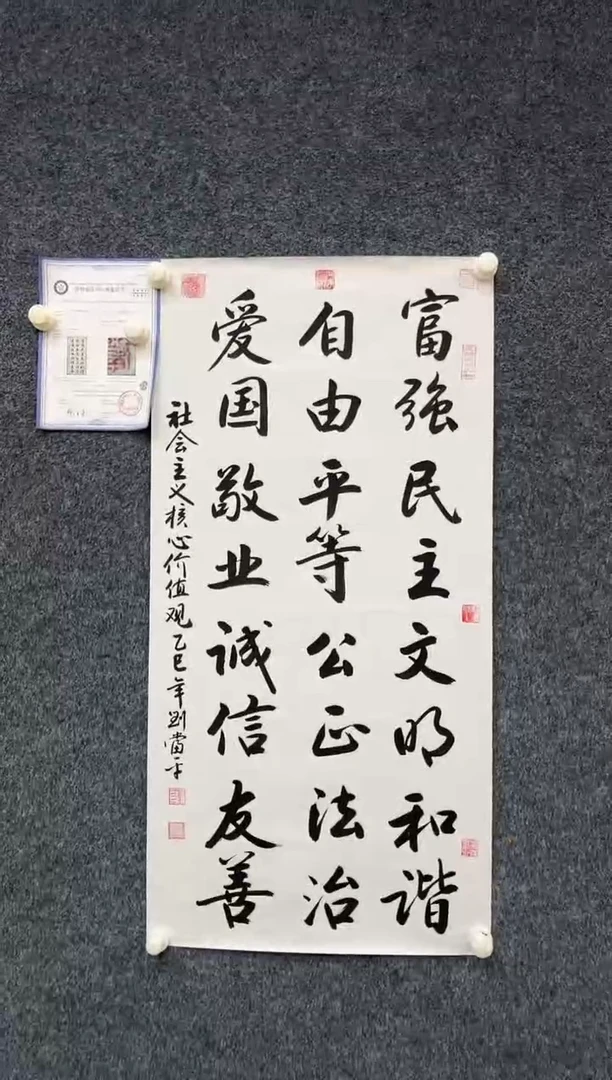 富强民主文明和谐
自由平等公正法治
爱国敬业诚信友善
社会主义核心价值观乙巳年刘当平